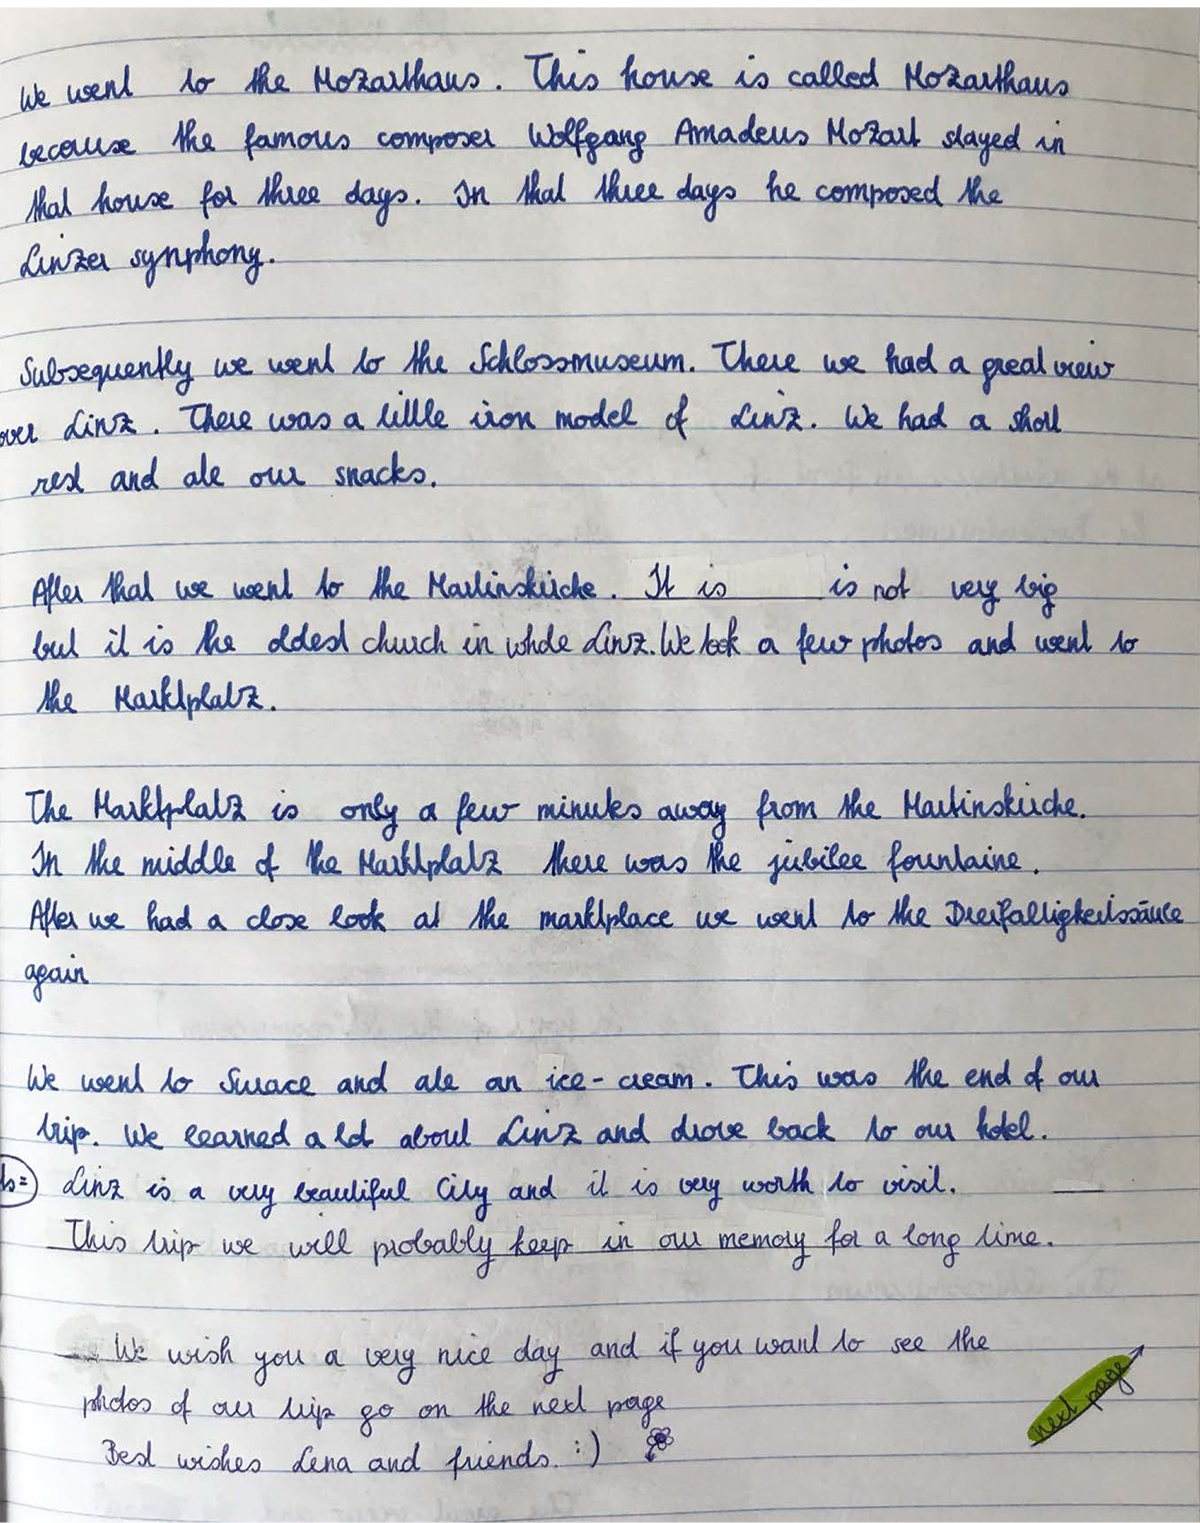 We went to the Mozarthaus. This house is called Mozarthaus
because the famous composer Wolfgang Amadeus Mozart stayed in
that house for three days. In that three days he composed the
Linzer synphony.
Subsequently we went to the Schlossmuseum. There we had a great view
over Linz. There was a little iron model of Linz. We had a short
rest and ate our snacks.
After that we went to the Martinskirche. It is is not very big
but it is the oldest church in whole Linz. We took a few photos and went to
the Marktplatz.
The Marktplatz is only a few minutes away from the Martinskirche.
In the middle of the Marktplatz there was the jubilee fountaine.
After we had a close look at the marktplace we went to the Dreifalligkeitssäule
again
We went to Surace and ate an ice-cream. This was the end of our
trip. We learned a lot about Linz and drove back to our hotel.
Linz is a very beautiful City and it is very worth to visit.
This trip we will probably keep in our memory for a long time.
We wish you a very nice day and if you want to see the
photos of our trip go on the next page
next page
Best wishes Lena and friends. :)